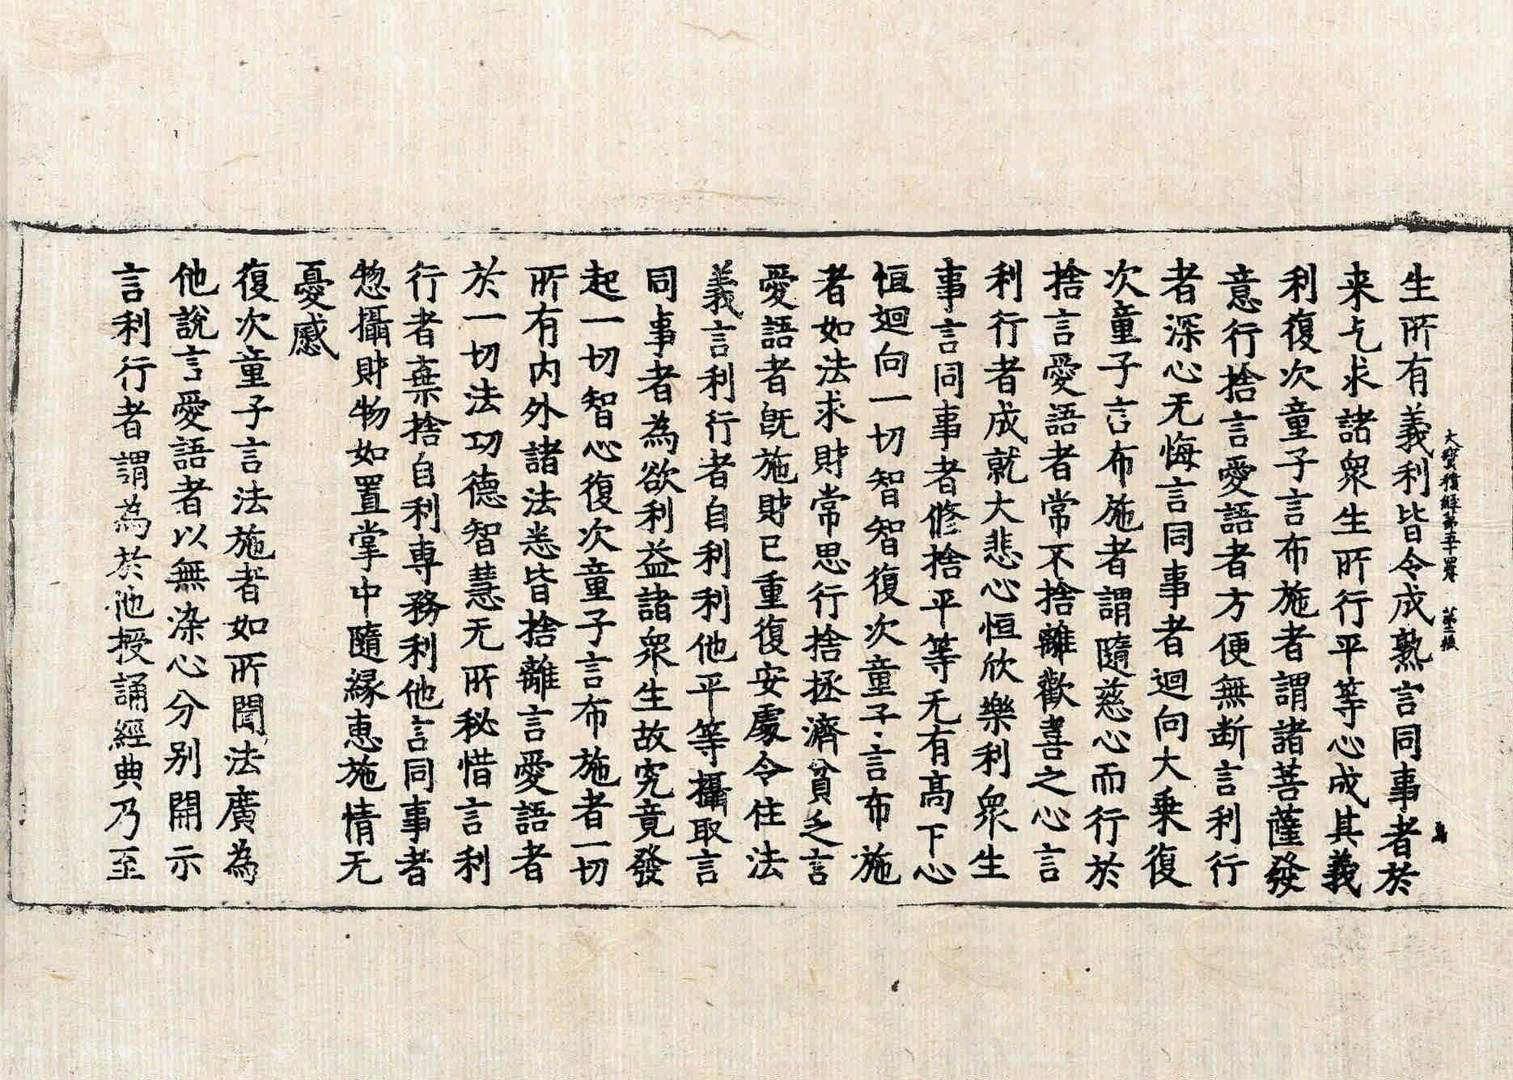 大寶積經第五十四卷 第二張
生所有義利皆令成熟言同事者於
来乞求諸衆生所行平等心成其義
利復次童子言布施者謂諸菩薩發
意行捨言愛語者方便無断言利行
者深心无悔言同事者迴向大乗復
次童子言布施者謂隨慈心而行於
捨言愛語者常不捨離歡喜之心言
利行者成就大悲心恒欣樂利衆生
事言同事者修捨平等无有高下心
恒迴向一切智智復次童子言布施
者如法求財常思行捨拯濟貧乏言
愛語者旣施財已重復安處令住法
義言利行者自利利他平等攝取言
同事者為欲利益諸衆生故究竟發
起一切智心復次童子言布施者一切
所有内外諸法悉皆捨離言愛語者
於一切法功德智慧无所秘惜言利
行者棄捨自利専務利他言同事者
惣攝財物如置掌中隨縁惠施情无
憂慼
復次童子言法施者如所聞法廣為
他說言愛語者以無染心分別開示
言利行者謂為於他授誦經典乃至